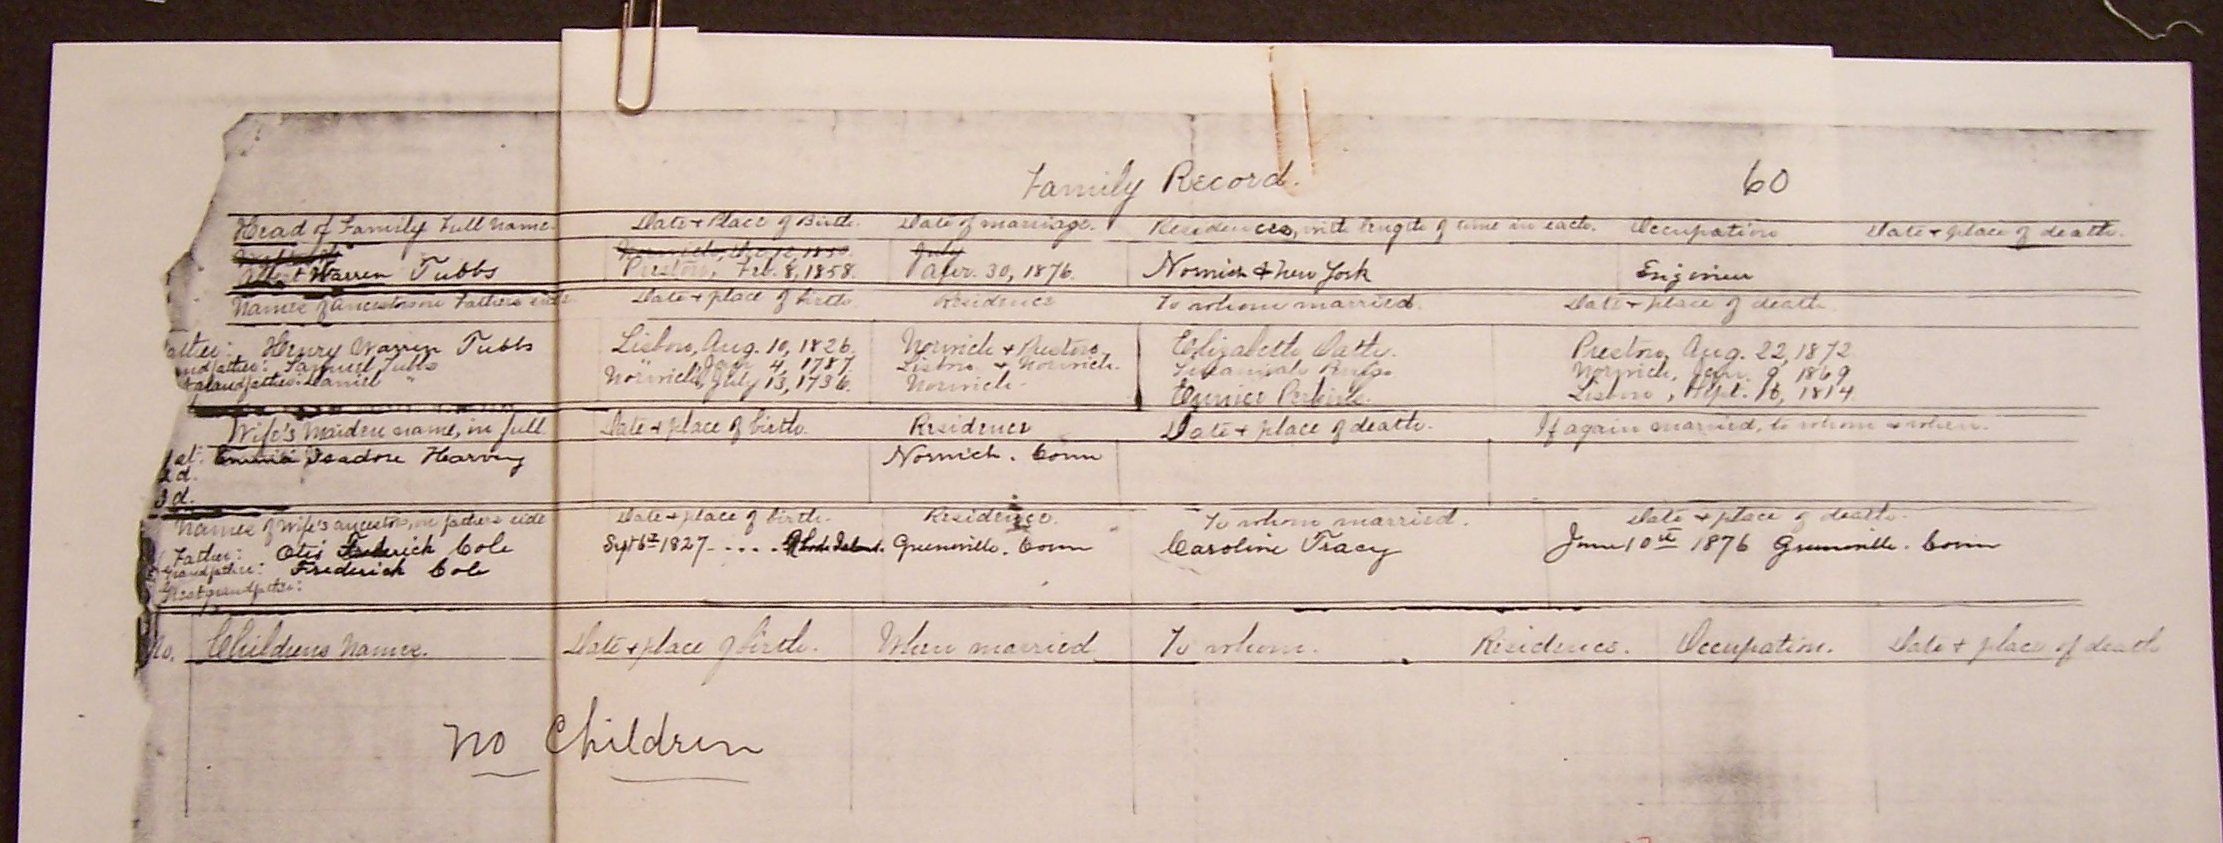 Family Record. 60
Head of Family Full Name. Date & Place of Birth. Date of marriage. Residences, with length of time in each. Occupation Date & place of death.
July
Albert Warren Tubbs Preston, Feb. 8, 1858. Apr. 30, 1876. Norwich & New York Engineer
Names of Ancestors on Fathers side Date & place of birth. Residence To whom married. Date & place of death.
ather: Henry Warren Tubbs Lisbon, Aug. 10, 1826. Norwich & Preston. Elizabeth Preston, Aug. 22, 1872
andfather: Samuel Tubbs " Jan. 4, 1787. Lisbon & Norwich. Norwich, Jan. 9, 1869
grandfather: Daniel " Norwich, July 13, 1736. Norwich. Eunice Perkins. Lisbon, Sept. 16, 1814
Wife's Maiden name, in full. Date & place of birth. Residence Date & place of death. If again married, to whom & when.
1st. Emma Isadore Harvey Norwich. Conn
2d.
3d.
Names of Wife's ancestors, on fathers side Date & place of birth. Residence. To whom married. Date & place of death.
Father: Otis Frederick Cole Sept 6th 1827 ..... Rhode Island. Greeneville. Conn Caroline Tracy June 10th 1876 Greeneville. Conn
Grandfather: Frederick Cole
Great grandfather:
No. Childrens Names. Date & place of birth. When married To whom. Residences. Occupation. Date & place of death
No Children